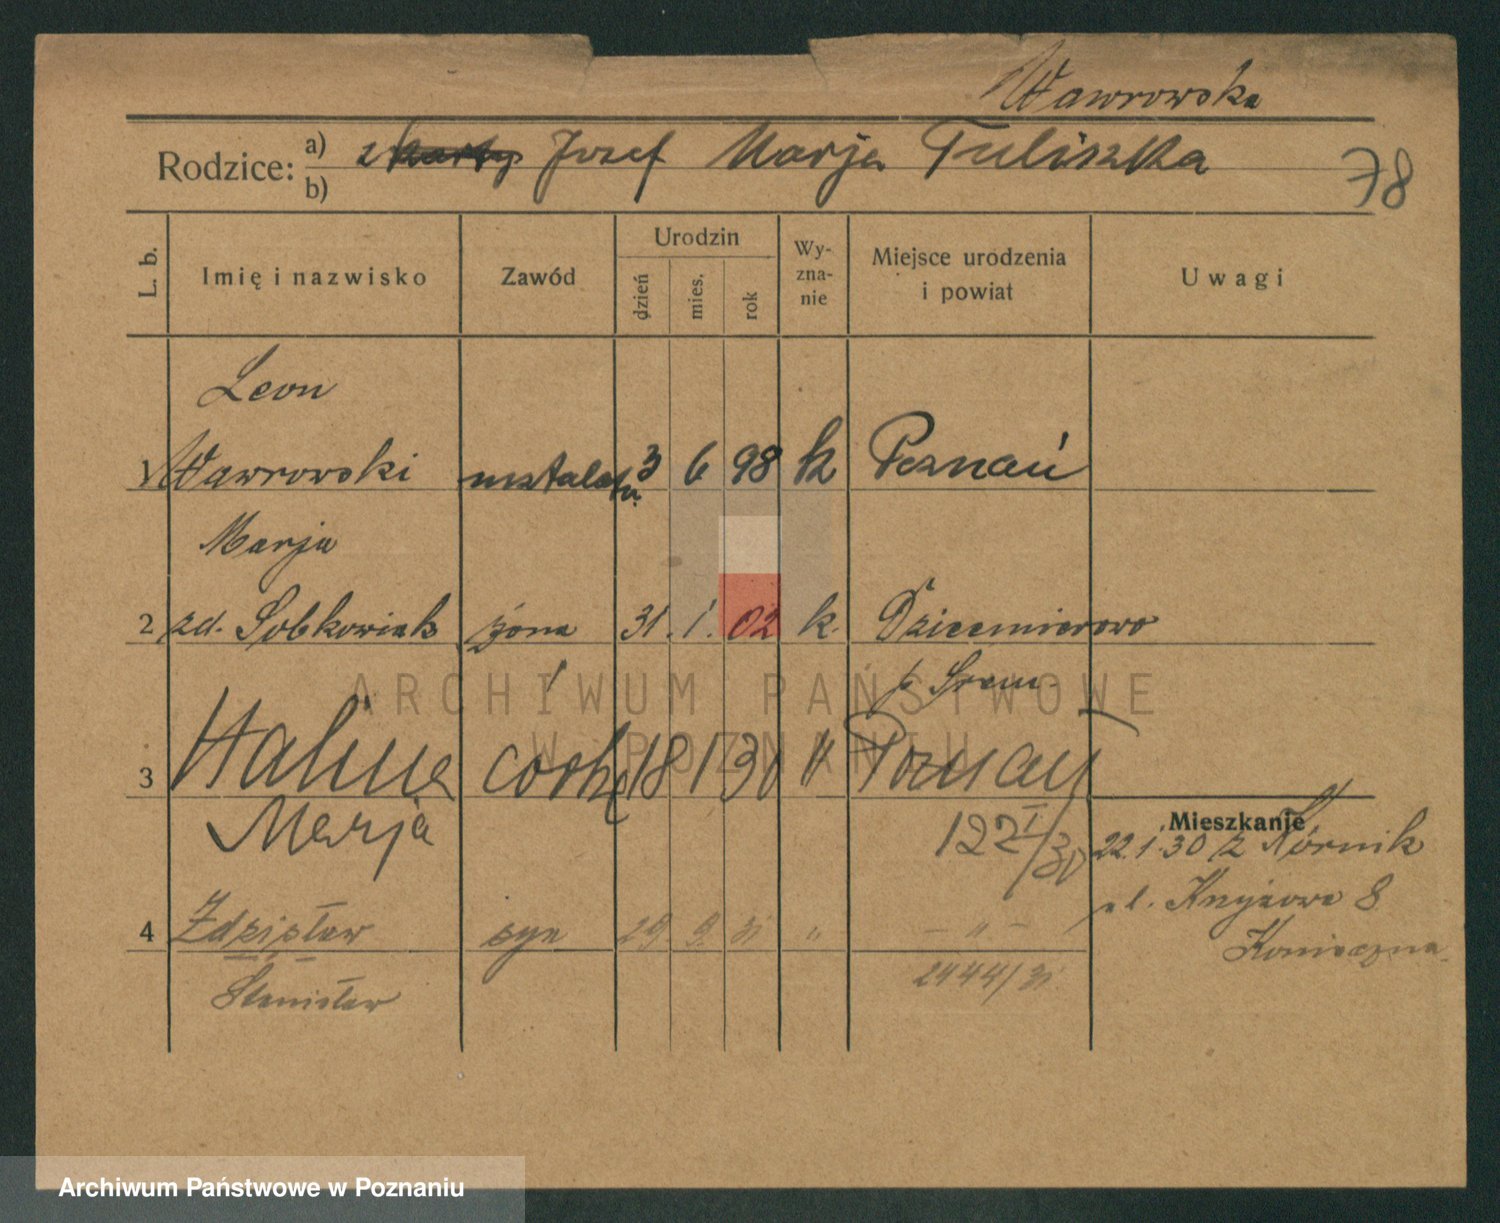 Wawrowska
Rodzice: a) Józef Marja Tuliszka
b)
78
L. b. Imię i nazwisko Zawód Urodzin dzień mies. rok Wy-zna-nie Miejsce urodzenia i powiat Uwagi
Leon
1 Wawrowski instalator 3 6 98 k Poznań
Marja
2 zd. Sobkowiak żona 31. 1. 02 k. Dziecmierowo
p Śrem
3 Halina córka 18 1 30 " Poznań
Marja 122 I/30
Mieszkanie
22.1.30 z Kórnik
ul. 8
Konieczna
4 Zdzisław syn 29 9. 31 " - " -
Stanisław 2444/31
ARCHIWUM PAŃSTWOWE
W POZNANIU
Archiwum Państwowe w Poznaniu